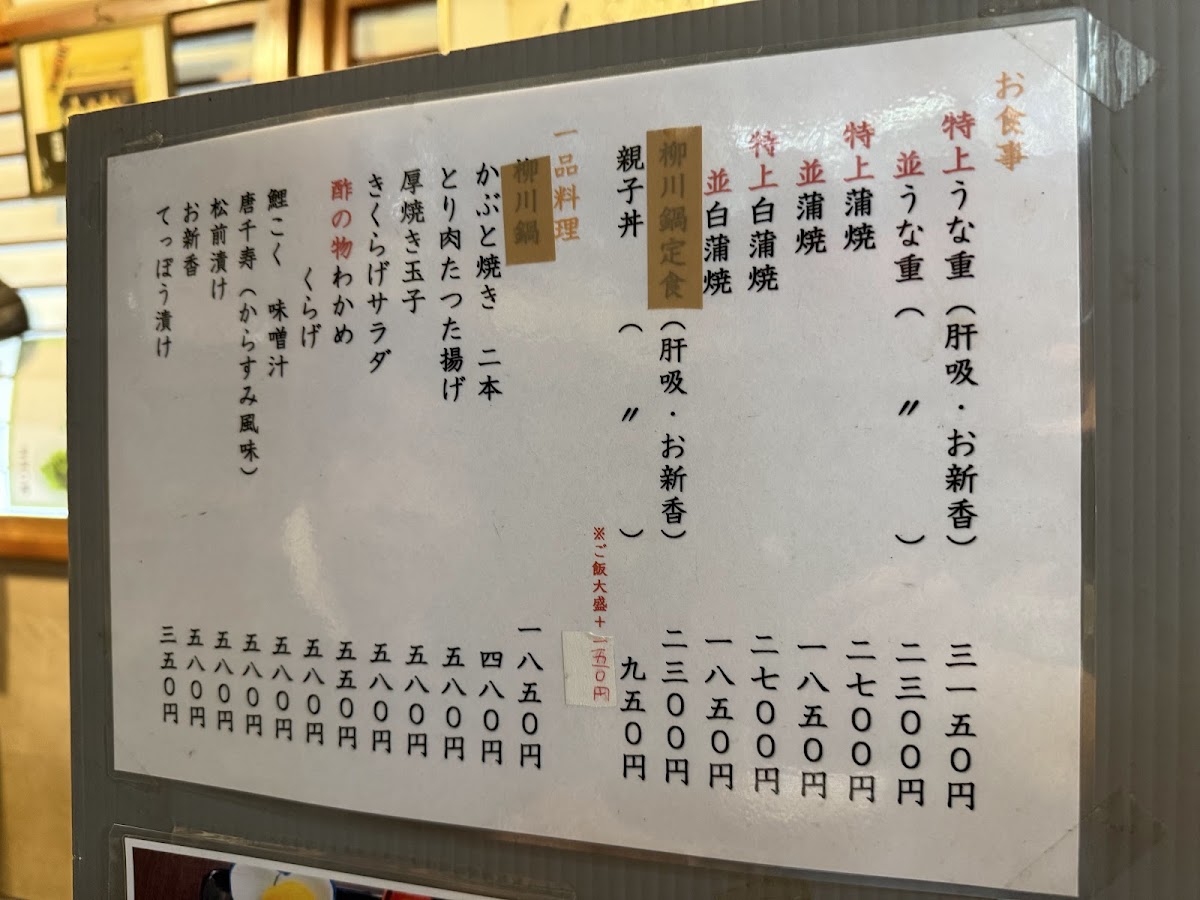 お食事
特上うな重（肝吸・お新香） 三一五〇円
並うな重（ 〃 ） 二三〇〇円
特上蒲焼 二七〇〇円
並蒲焼 一八五〇円
特上白蒲焼 二七〇〇円
並白蒲焼 一八五〇円
柳川鍋定食（肝吸・お新香） 二三〇〇円
親子丼（ 〃 ） 九五〇円
※ご飯大盛＋一五〇円
一品料理
柳川鍋 一八五〇円
かぶと焼き 二本 四八〇円
とり肉たつた揚げ 五八〇円
厚焼き玉子 五八〇円
きくらげサラダ 五八〇円
酢の物わかめ 五五〇円
くらげ 五八〇円
鯉こく 味噌汁 五八〇円
唐千寿（からすみ風味） 五八〇円
松前漬け 五八〇円
お新香 五八〇円
てっぽう漬け 三五〇円